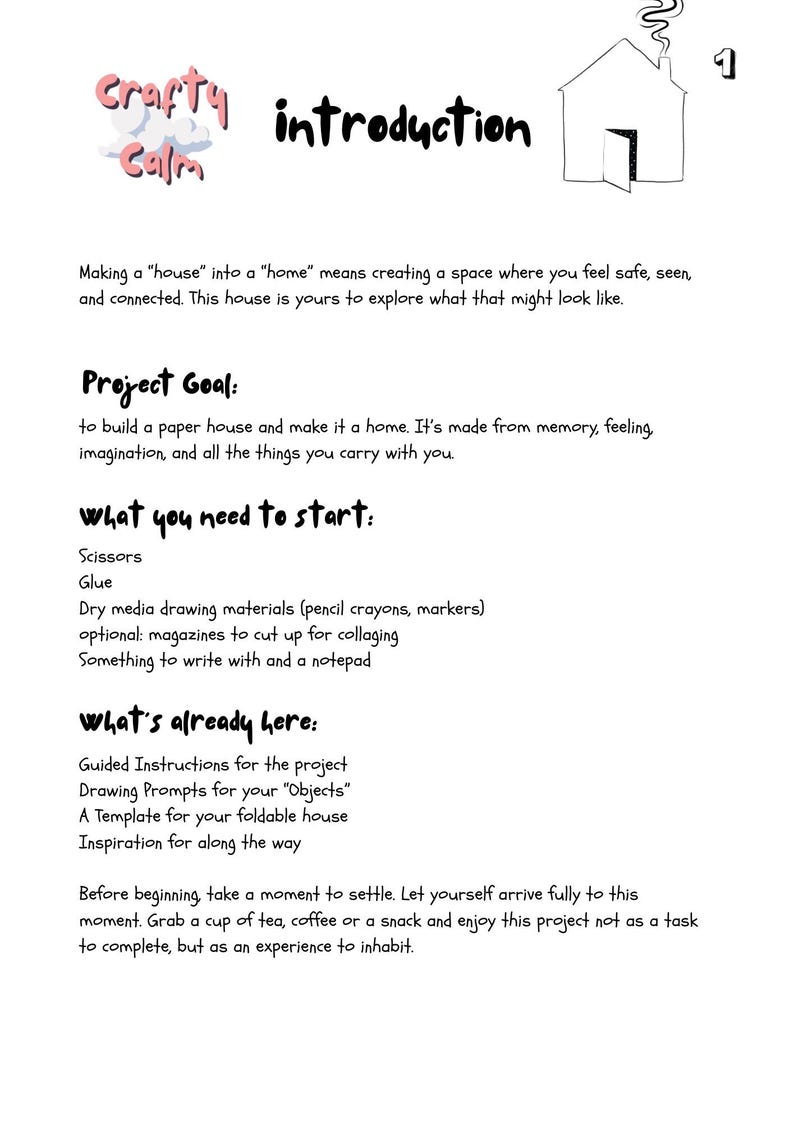 Crafty
Calm
introduction
1
Making a "house" into a "home" means creating a space where you feel safe, seen,
and connected. This house is yours to explore what that might look like.
Project Goal:
to build a paper house and make it a home. It's made from memory, feeling,
imagination, and all the things you carry with you.
What you need to start:
Scissors
Glue
Dry media drawing materials (pencil crayons, markers)
optional: magazines to cut up for collaging
Something to write with and a notepad
What's already here:
Guided Instructions for the project
Drawing Prompts for your "Objects"
A Template for your foldable house
Inspiration for along the way
Before beginning, take a moment to settle. Let yourself arrive fully to this
moment. Grab a cup of tea, coffee or a snack and enjoy this project not as a task
to complete, but as an experience to inhabit.